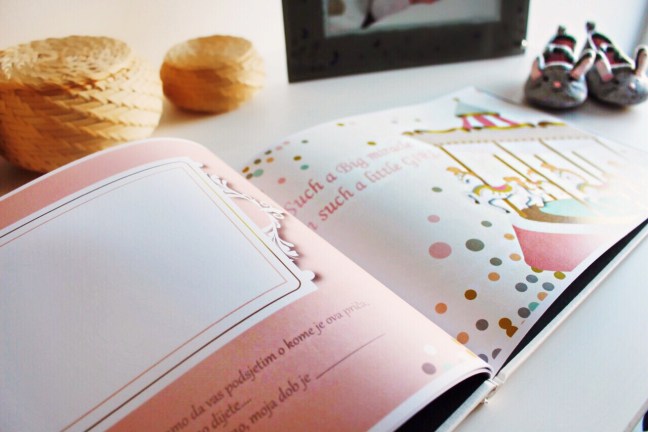 Such a Big miracle
in such a little GIRL
amo da vas podsjetim o kome je ova priča,
o dijete...
to, moja dob je